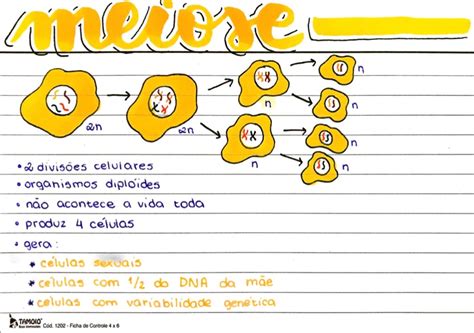 meiose
n
n
n
n
2n
2n
n
n
• 2 divisões celulares
• organismos diplóides
• não acontece a vida toda
• produz 4 células
• gera:
* células sexuais
* células com 1/2 do DNA da mãe
* células com variabilidade genética
TAMOIO Cód. 1202 - Ficha de Controle 4 x 6